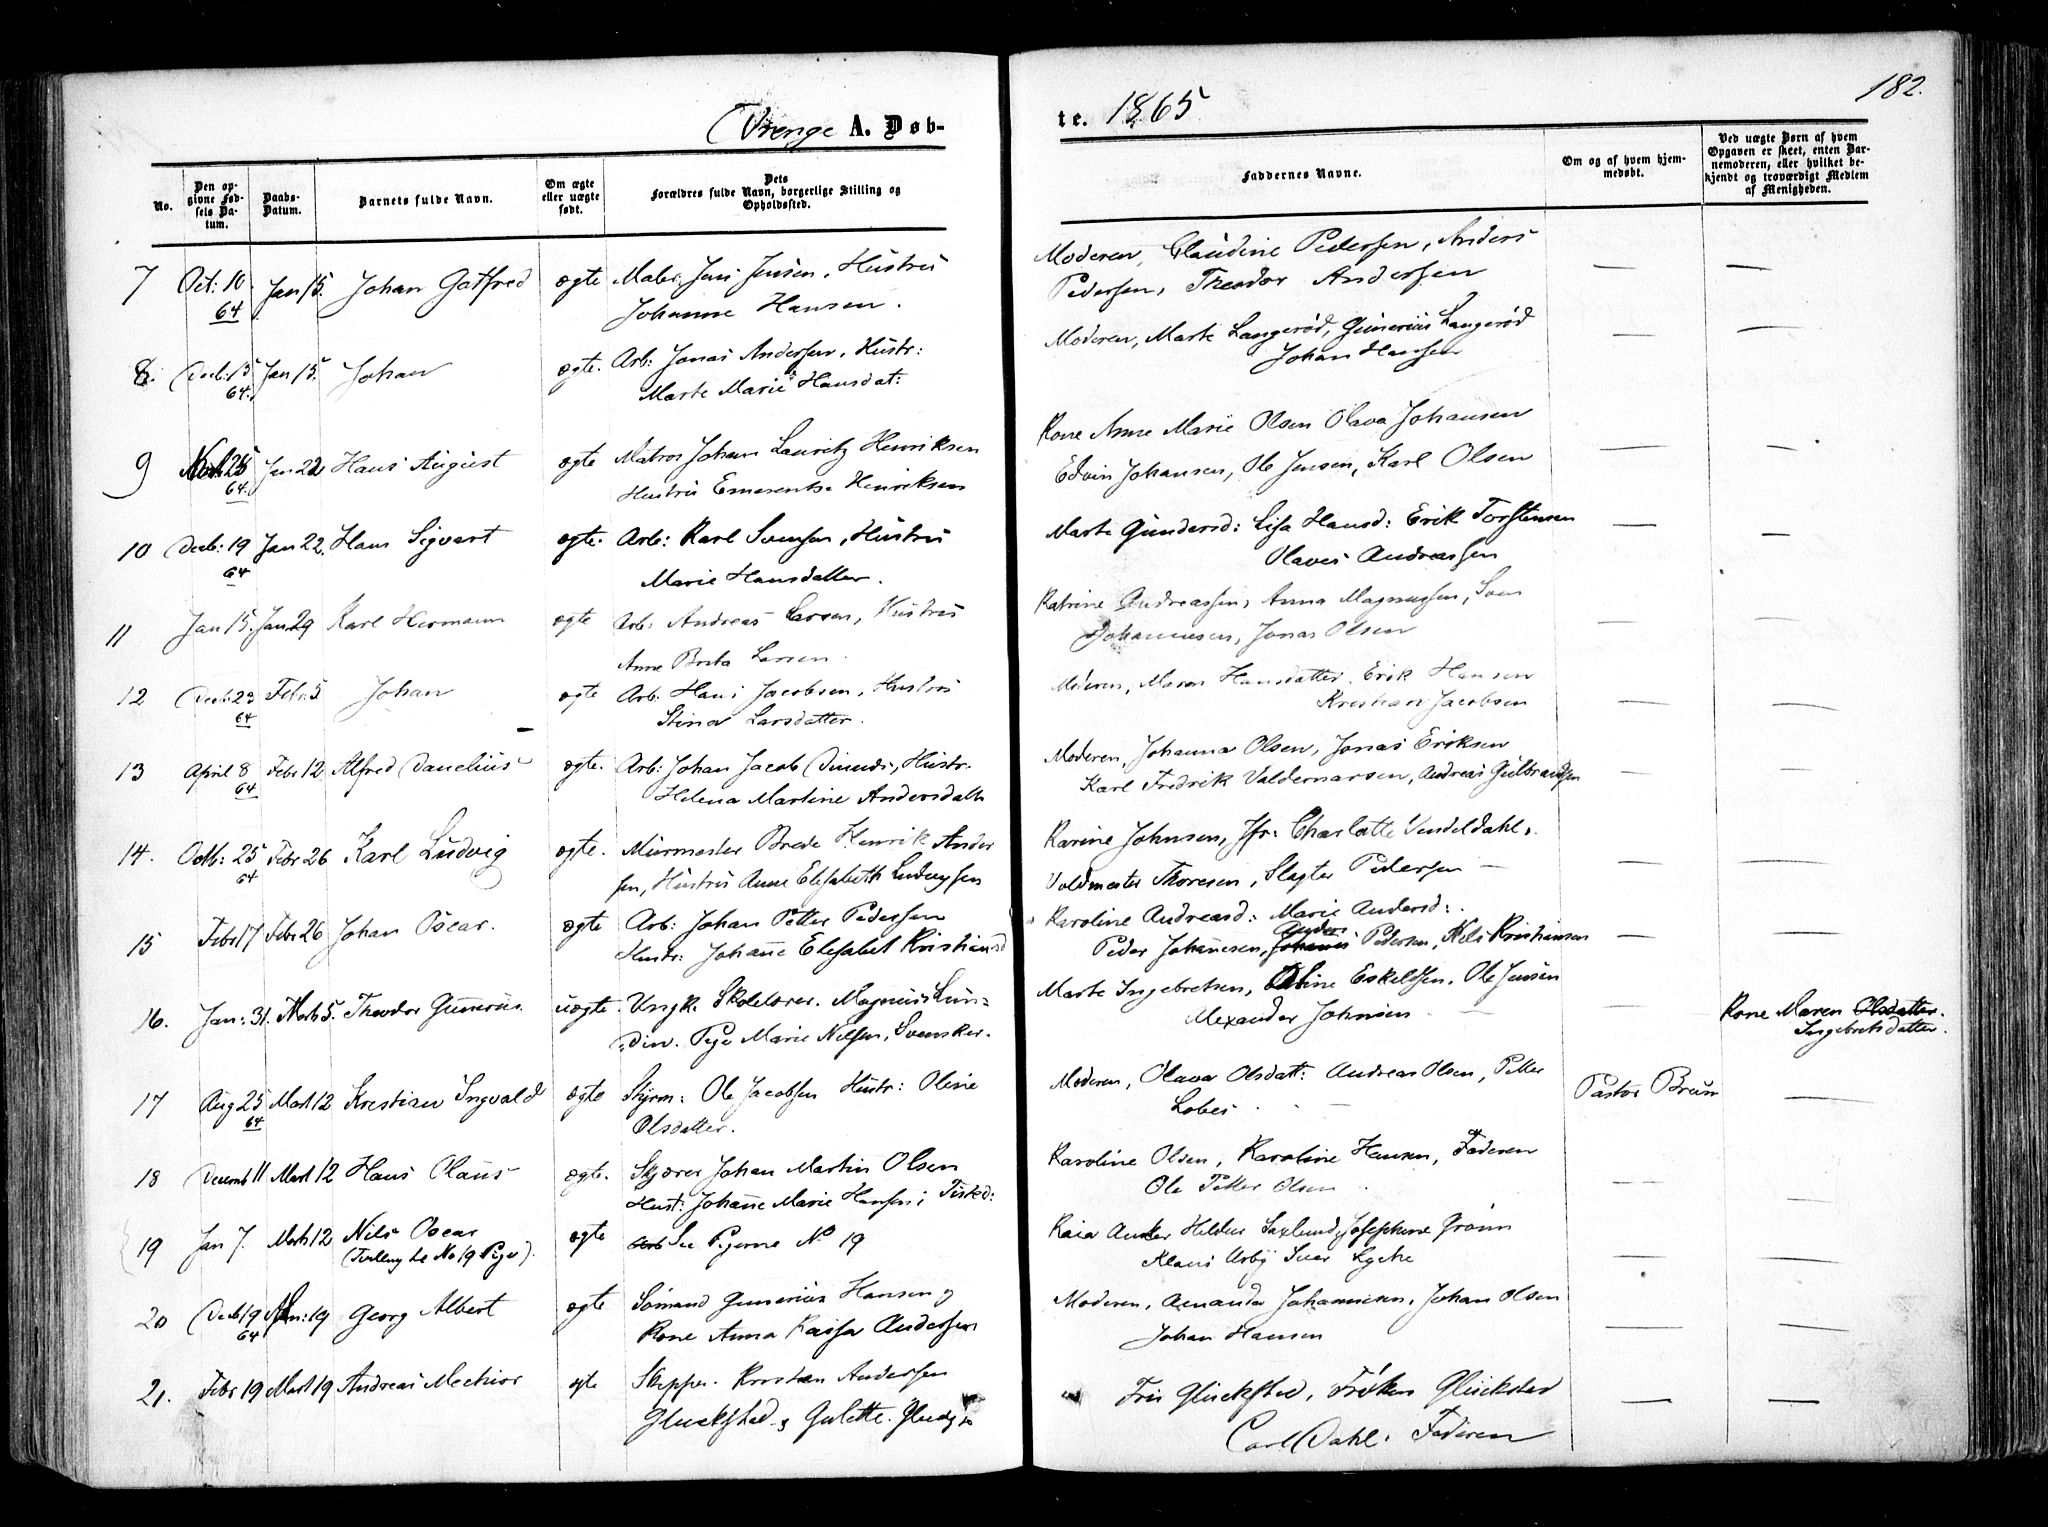 182.
Drenge A. Døb-
te. 1865
No.
Den opgivne Fødsels Datum.
Daabs-Datum.
Barnets fulde Navn.
Om ægte eller uægte født.
Dets Forældres fulde Navn, borgerlige Stilling og Opholdssted.
Faddernes Navne.
Om og af hvem hjemmedøbt.
Ved uægte Børn af hvem Opgaven er skeet, enten Barnemoderen, eller hvilket bekjendt og troværdigt Medlem af Menigheden.
7 Oct: 10 64 Jan 15. Johan Gotfred ægte Maler Jens Jensen, Hustru
Johanne Hansen.
Moderen, Claudine Pedersen, Anders
Pedersen, Theodor Andersen — —
8. Decb: 15 64. Jan 15. Johan ægte. Arb: Jonas Andersen, Hustr:
Marte Marie Hansdat:
Moderen, Marte Langerød, Gunerius Langerød
Johan Hansen — —
9 25 64. Jan 22 Hans August ægte Matros Johan Lauritz Henriksen
Hustru Emerentse Henriksen
Kone Anne Marie Olsen Olava Johansen
Edvin Johansen, Ole Jensen, Karl Olsen — —
10 Decb: 19 64 Jan 22. Hans Sigvart ægte. Arb: Karl Svensen, Hustru
Marie Hansdatter.
Marte Gundersd: Lisa Hansd: Erik Torstensen
Olaves Andreassen — —
11 Jan 15. Jan 29 Karl Hermann ægte Arb: Andreas Larsen, Hustru
Anne Brita Larsen.
Katrine Andreassen, Anna Magnussen, Sven
Johannesen, Jonas Olsen — —
12 Decb: 23 64 Febr. 5 Johan ægte Arb. Hans Jacobsen, Hustru
Stina Larsdatter.
Moderen, Maren Hansdatter, Erik Hansen
Kristian Jacobsen — —
13 April 8 64 Febr 12 Alfred Danelius ægte. Arb: Johan Jacob, Hustr.
Helena Martine Andersdatt
Moderen, Johanna Olsen, Jonas Eriksen
Karl Fredrik Valdemarsen, Andreas Gulbrandsen — —
14. Octb: 25 64 Febr 26 Karl Ludvig ægte. Murmester Brede Henrik Ander
sen, Hustru Anne Elisabeth Ludvigsen
Karine Johnsen, Jfr: Charlotte Vendeldahl,
Voldmester Thoresen, Slagter Pedersen — — —
15 Febr 17 Febr 26 Johan Oscar. ægte Arb: Johan Petter Pedersen
Hustr: Johane Elisabet Kristiansd
Karoline Andreasd: Marie Andersd:
Peder Johanesen, Johanes Anders Pedersen, Nels Kristiansen — —
16. Jan: 31. Marts 5. Theodor Gunerius. uægte. Ungk. Skolelærer. Magnus Lun=
din. Pige Marie Nilsen, Svensker.
Marte Ingebretsen, Oline Eskeldsen, Ole Jensen
Alexander Johnsen — —
Kone Maren Olsdatter.
Ingebretsdatter.
17 Aug 25 64 Mart 12 Kristian Ingvald ægte Styrm: Ole Jacobsen Hustr: Oline
Olsdatter.
Moderen, Olava Olsdatt: Andreas Olsen, Petter
Lobes — Pastor Bruun —
18 Decemb 11 Mart 12 Hans Claus ægte. Skjærer Johan Martin Olsen
Hust: Johane Marie Hansen i Tisted:
Karoline Olsen, Karoline Hansen, Faderen
Ole Petter Olsen — —
19 Jan 7. Marts 12 Nils Oscar ægte Arb See Pigerne No 19
(Tvilling til No 19 Piger).
Kaia Anker Hilder Saxlund, Josephine Grønn
Klaus Arby Iver Lycke — —
20 Decb 19 64 19 Georg Albert ægte Sømand Gunerius Hansen og
Kone Anna Kaisa Andersen
Moderen, Amanda Johannesen, Johan Olsen
Johan Hansen — —
21. Febr 19 Mart 19 Andreas Mechior ægte Skipper. Kristen Andersen
Gluckstad og Gulette
Fru Gluckstad, Frøken Gluckstad
Carl Dahl. Faderen — —